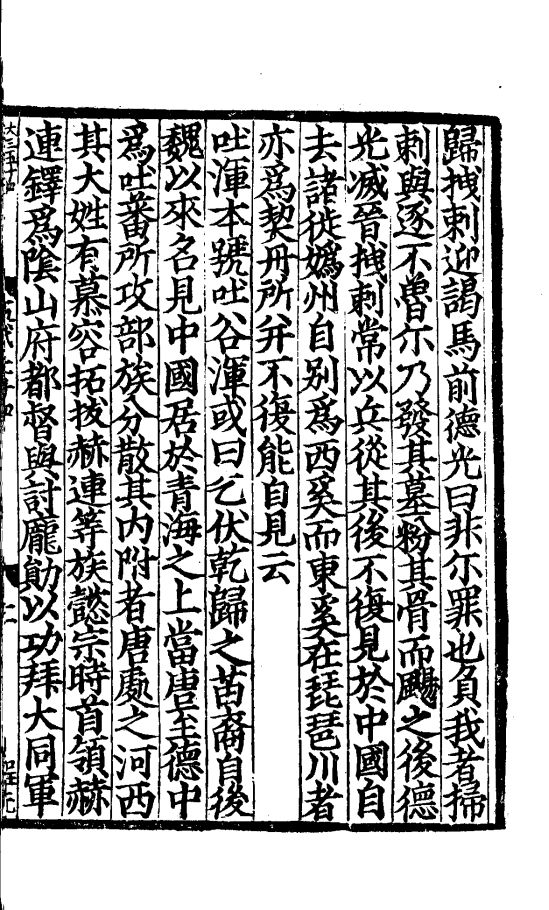 歸拽剌迎謁馬前德光曰非尒罪也負我者掃
剌與逐不魯尒乃發其墓粉其骨而颺之後德
光滅晉拽剌常以兵從其後不復見於中國自
去諸徙嬀州自别爲西奚而東奚在琵琶川者
亦爲契丹所并不復能自見云
吐渾本號吐谷渾或曰乞伏乾歸之苗裔自後
魏以來名見中國居於青海之上當唐至德中
爲吐蕃所攻部族分散其内附者唐處之河西
其大姓有慕容拓拔赫連等族懿宗時首領赫
連鐸爲陰山府都督與討龐勛以功拜大同軍